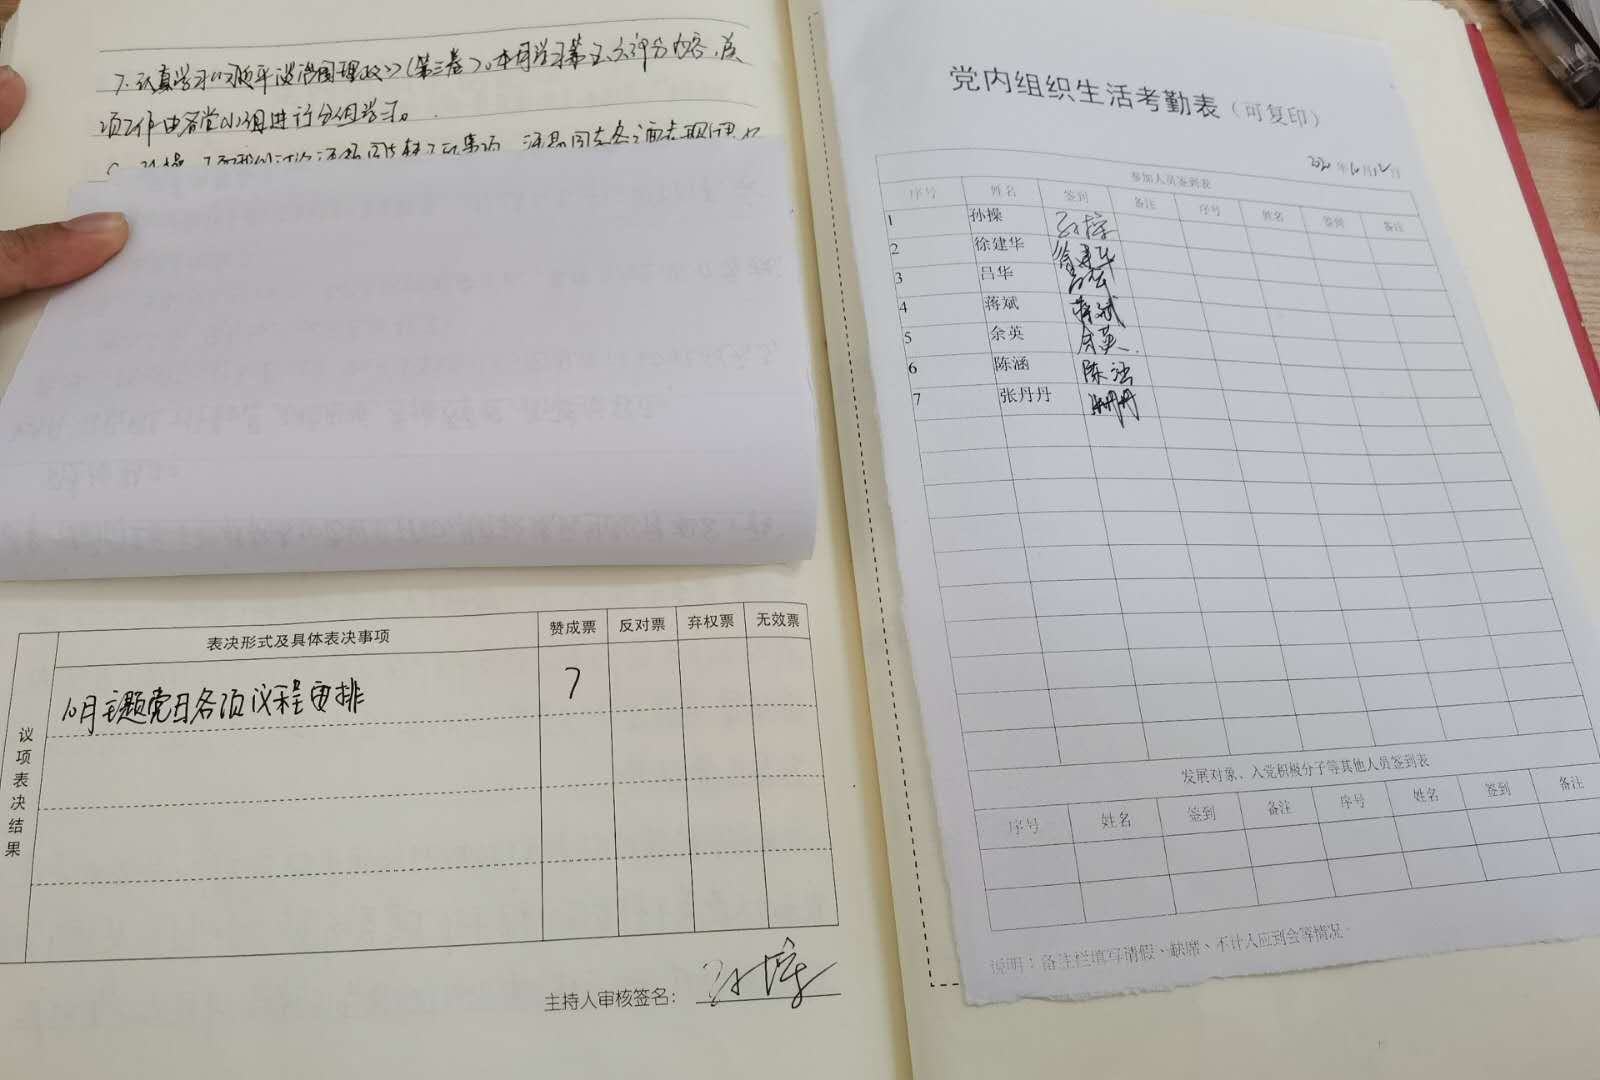 7.认真学习《习近平谈治国理政》(第三卷)。本月学习第五、六部分内容,该
项工作由各党小组进行分组学习。
议项表决结果
表决形式及具体表决事项 赞成票 反对票 弃权票 无效票
10月主题党日各项议程安排 7
主持人审核签名: 孙操
党内组织生活考勤表(可复印)
2020年10月12日
参加人员签到表
序号 姓名 签到 备注 序号 姓名 签到 备注
1 孙操 孙操
2 徐建华 徐建华
3 吕华 吕华
4 蒋斌 蒋斌
5 余英 余英
6 陈涵 陈涵
7 张丹丹 张丹丹
发展对象、入党积极分子等其他人员签到表
序号 姓名 签到 备注 序号 姓名 签到 备注
说明:备注栏填写请假、缺席、不计入应到会等情况。